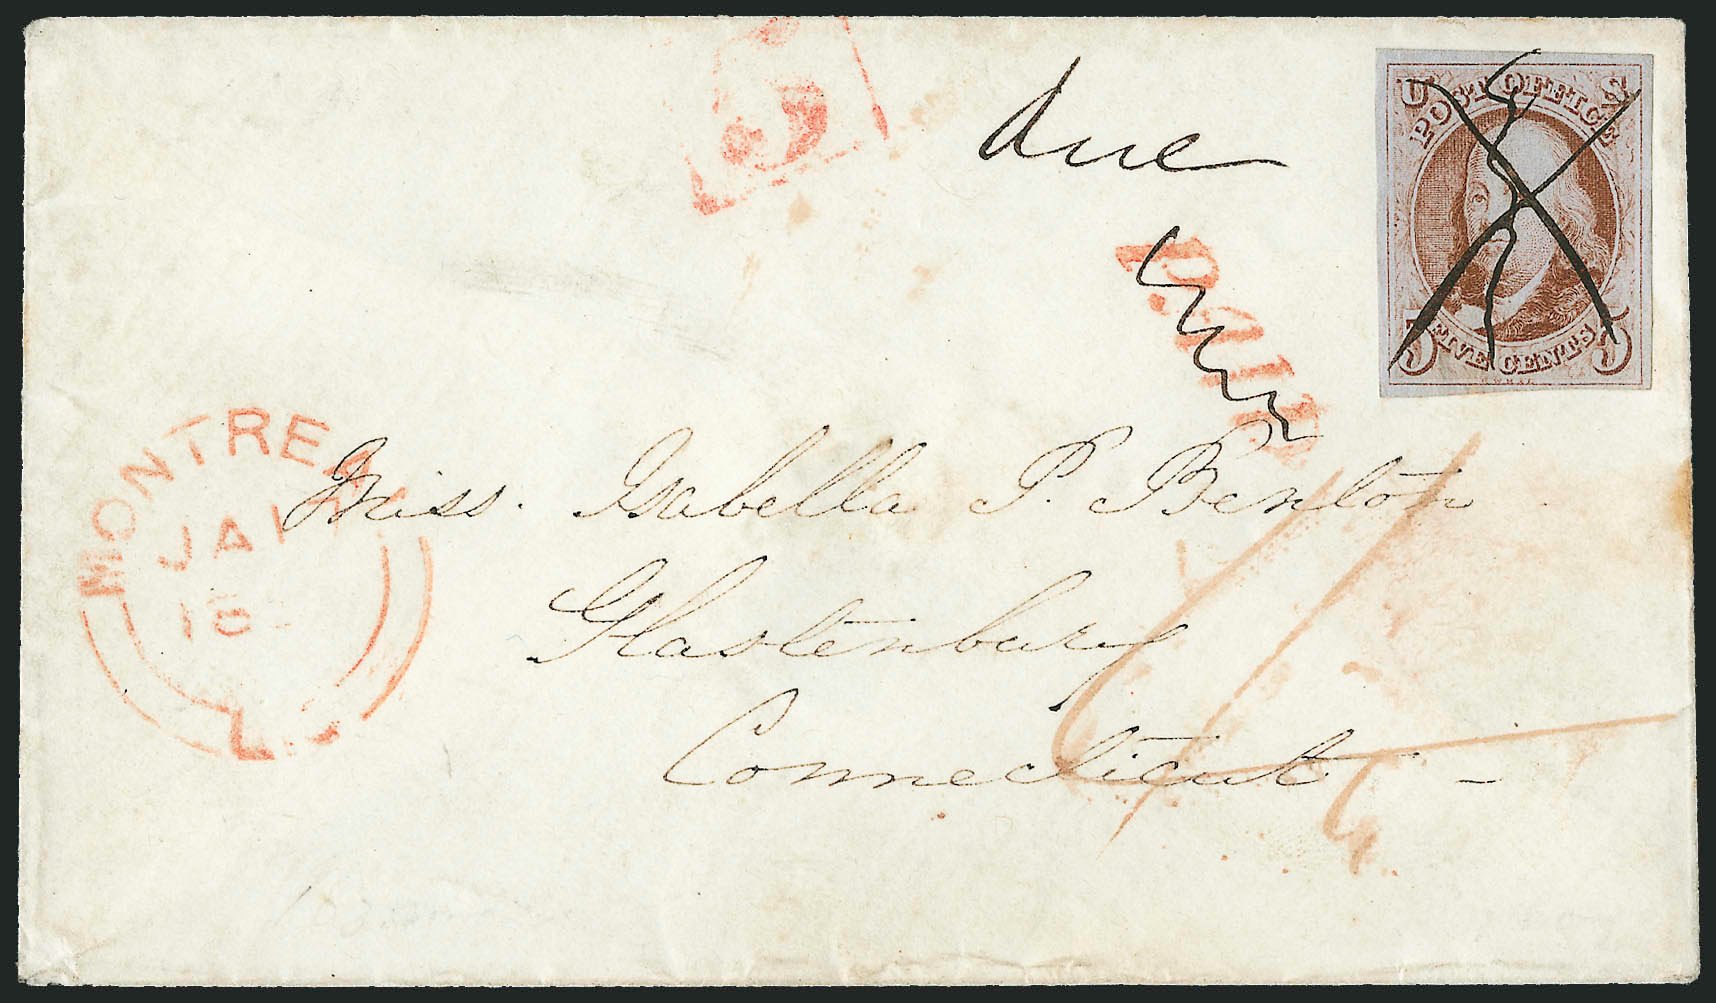 5
due
U S
POST OFFICE
5 FIVE CENTS 5
PAID
MONTREAL
JA 17
18
L.C
Miss. Isabella P. Benton
Glastenbury
Connecticut -